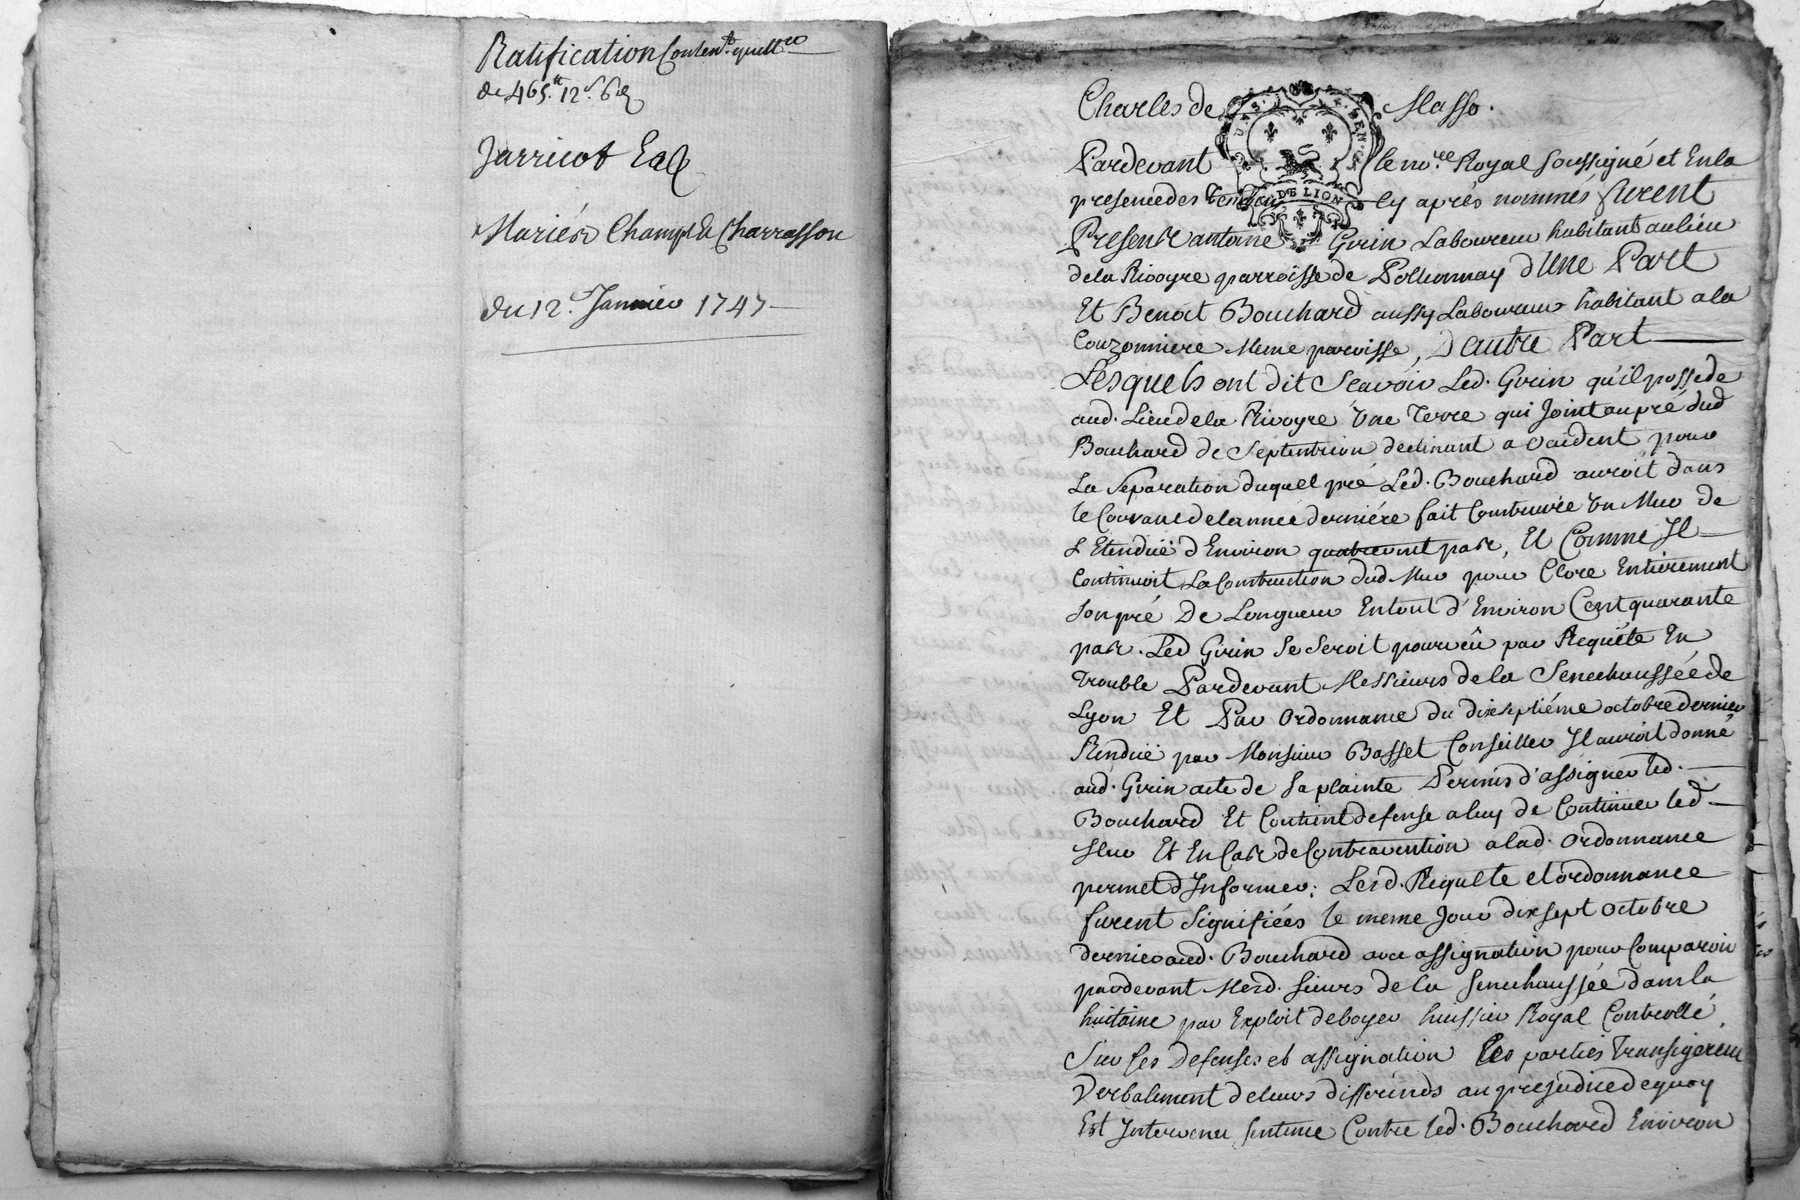 Ratification Conten.t quitt.ce
de 465.tt 12.s 6.d
Jarricot Et
Mariés Champ Et Charrasson
du 12.e Janvier 1747
Charles de Masso.
GEN. DE LION
Pardevant le no.re Royal soussigné et En la
presence des temoins Cy aprés nommés furent
Presents antoine Girin Laboureur habitant au lieu
de la Rivoyre parroisse de Pollionnay d'Une Part
Et Benoit Bouchard aussy Laboureur habitant a la
Couzonniere Meme paroisse, D'autre Part
Lesquels ont dit Scavoir Led. Girin qu'il possede
aud. Lieu de la Rivoyre Une Terre qui Joint au pré dud
Bouchard de Septentrion declinant a occident pour
La Separation duquel pré Led. Bouchard auroit dans
le Courant de lannee derniére fait Construire Un Mur de
L'Etenduë d'Environ quatrevint pas, Et Comme Il
Continuoit La Construction dud. Mur pour Clore Entierement
Son pré De Longueur En tout d'Environ Cent quarante
pas. Led Girin Se Seroit pourvû par Requéte En
Trouble Pardevant Messieurs de la Senechaussée de
Lyon Et Par Ordonnance du dixseptiéme octobre dernier
Renduë par Monsieur Basset Conseiller Il auroit donné
aud. Girin acte de Sa plainte Permis d'assigner led.
Bouchard Et Content defense a luy de Continuer led
Mur Et En Cas de Contravention a lad. Ordonnance
permet d'Informer; Lesd. Requéte et ordonnance
furent Signifiées le meme Jour dixsept octobre
dernier aud. Bouchard avec assignation pour Comparoir
pardevant Mesd. Sieurs de la Senechaussée dans la
huitaine par Exploit de boyer huissier Royal Controllé,
Sur les Defenses et assignation les parties Transigerent
Verbalement de leurs differends au préjudice de quoy
Est Intervenu Sentence Contre led. Bouchard Environ